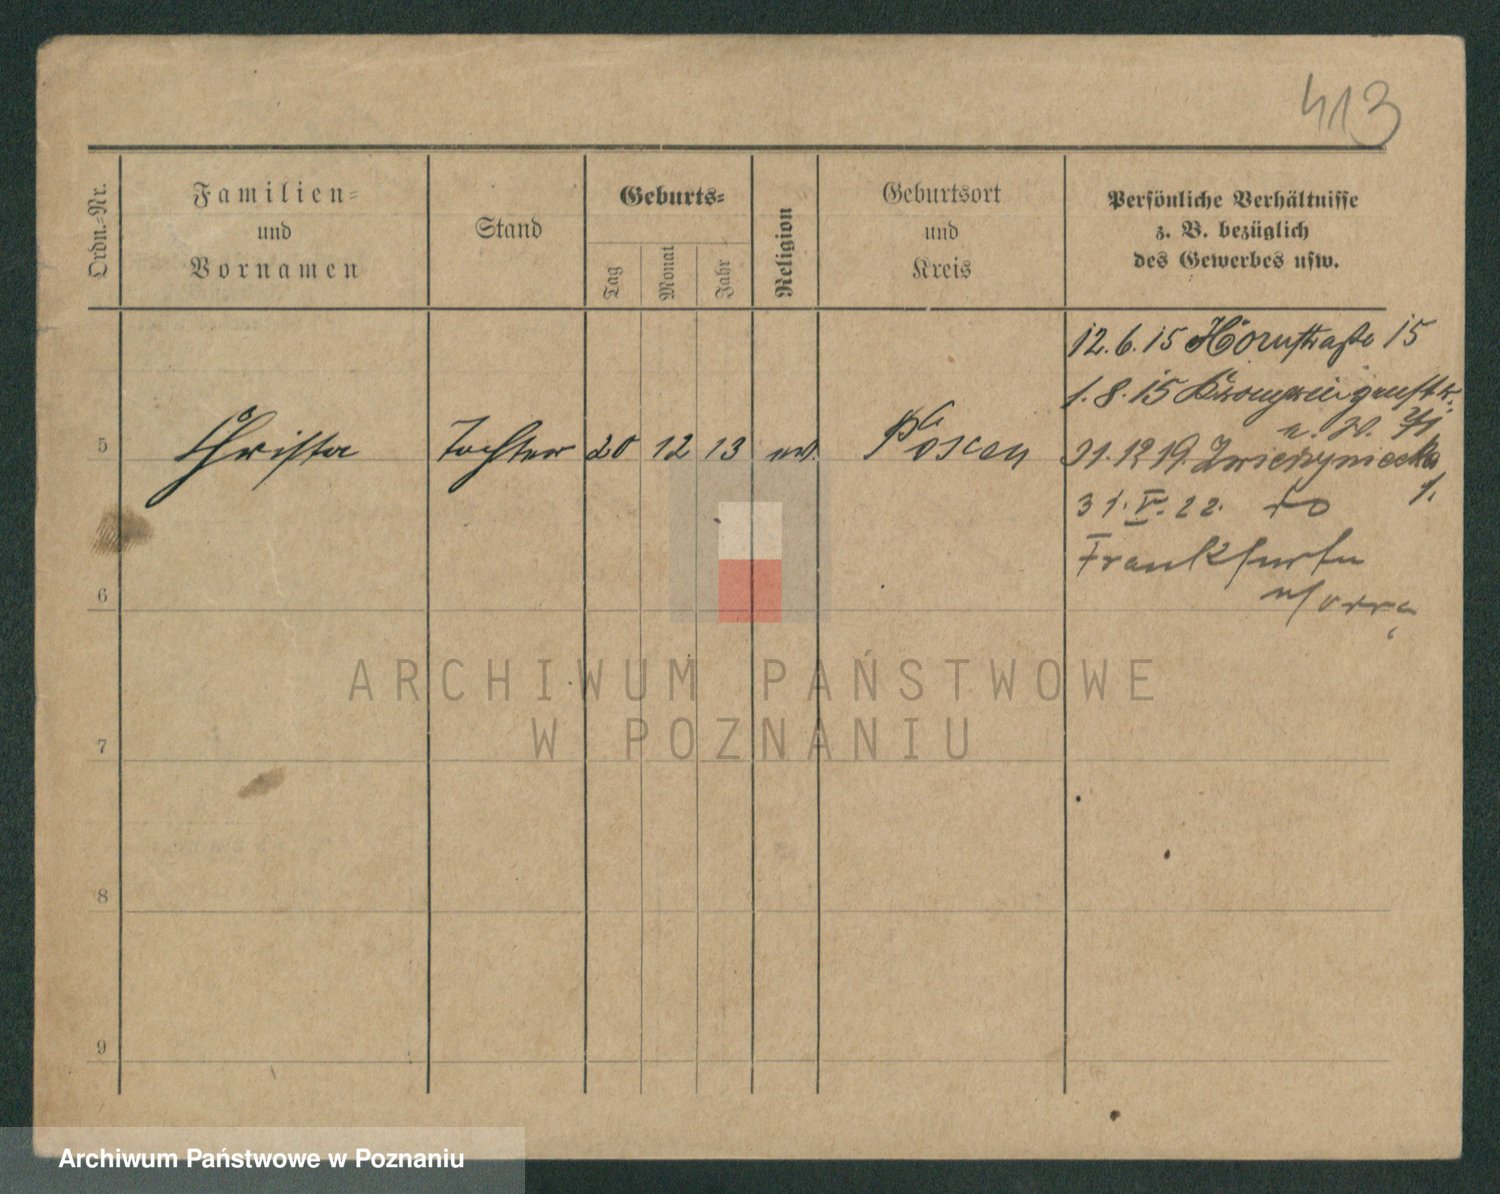 413
Ordn.=Nr.
Familien=
und
Vornamen
Stand
Geburts=
Tag
Monat
Jahr
Religion
Geburtsort
und
Kreis
Persönliche Verhältnisse
z. B. bezüglich
des Gewerbes usw.
12.6.15 Hornstraße 15
1.8.15 Kronprinzenstr.
5 Christa Tochter 20 12 13 ev. Posen
31.12.19. Zwierzyniecka
1.
31.V.22. do
Frankfurtu
6
7
8
9
ARCHIWUM PAŃSTWOWE
W POZNANIU
Archiwum Państwowe w Poznaniu